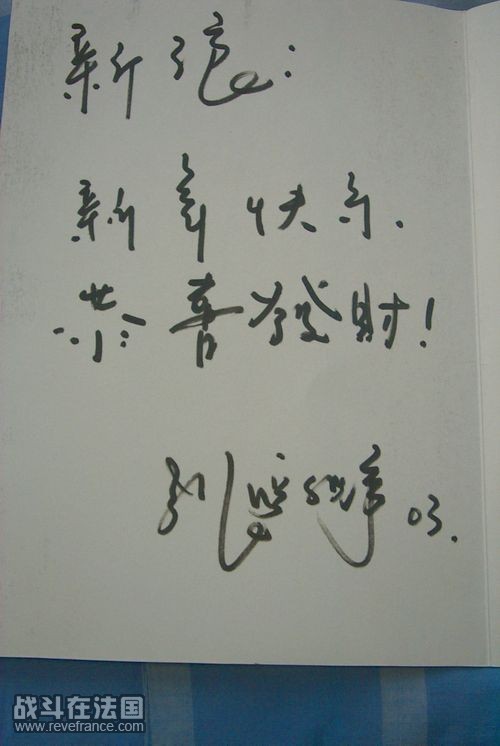 新浪:
新年快乐.
恭喜發財!
03.
战斗在法国
www.revefrance.com